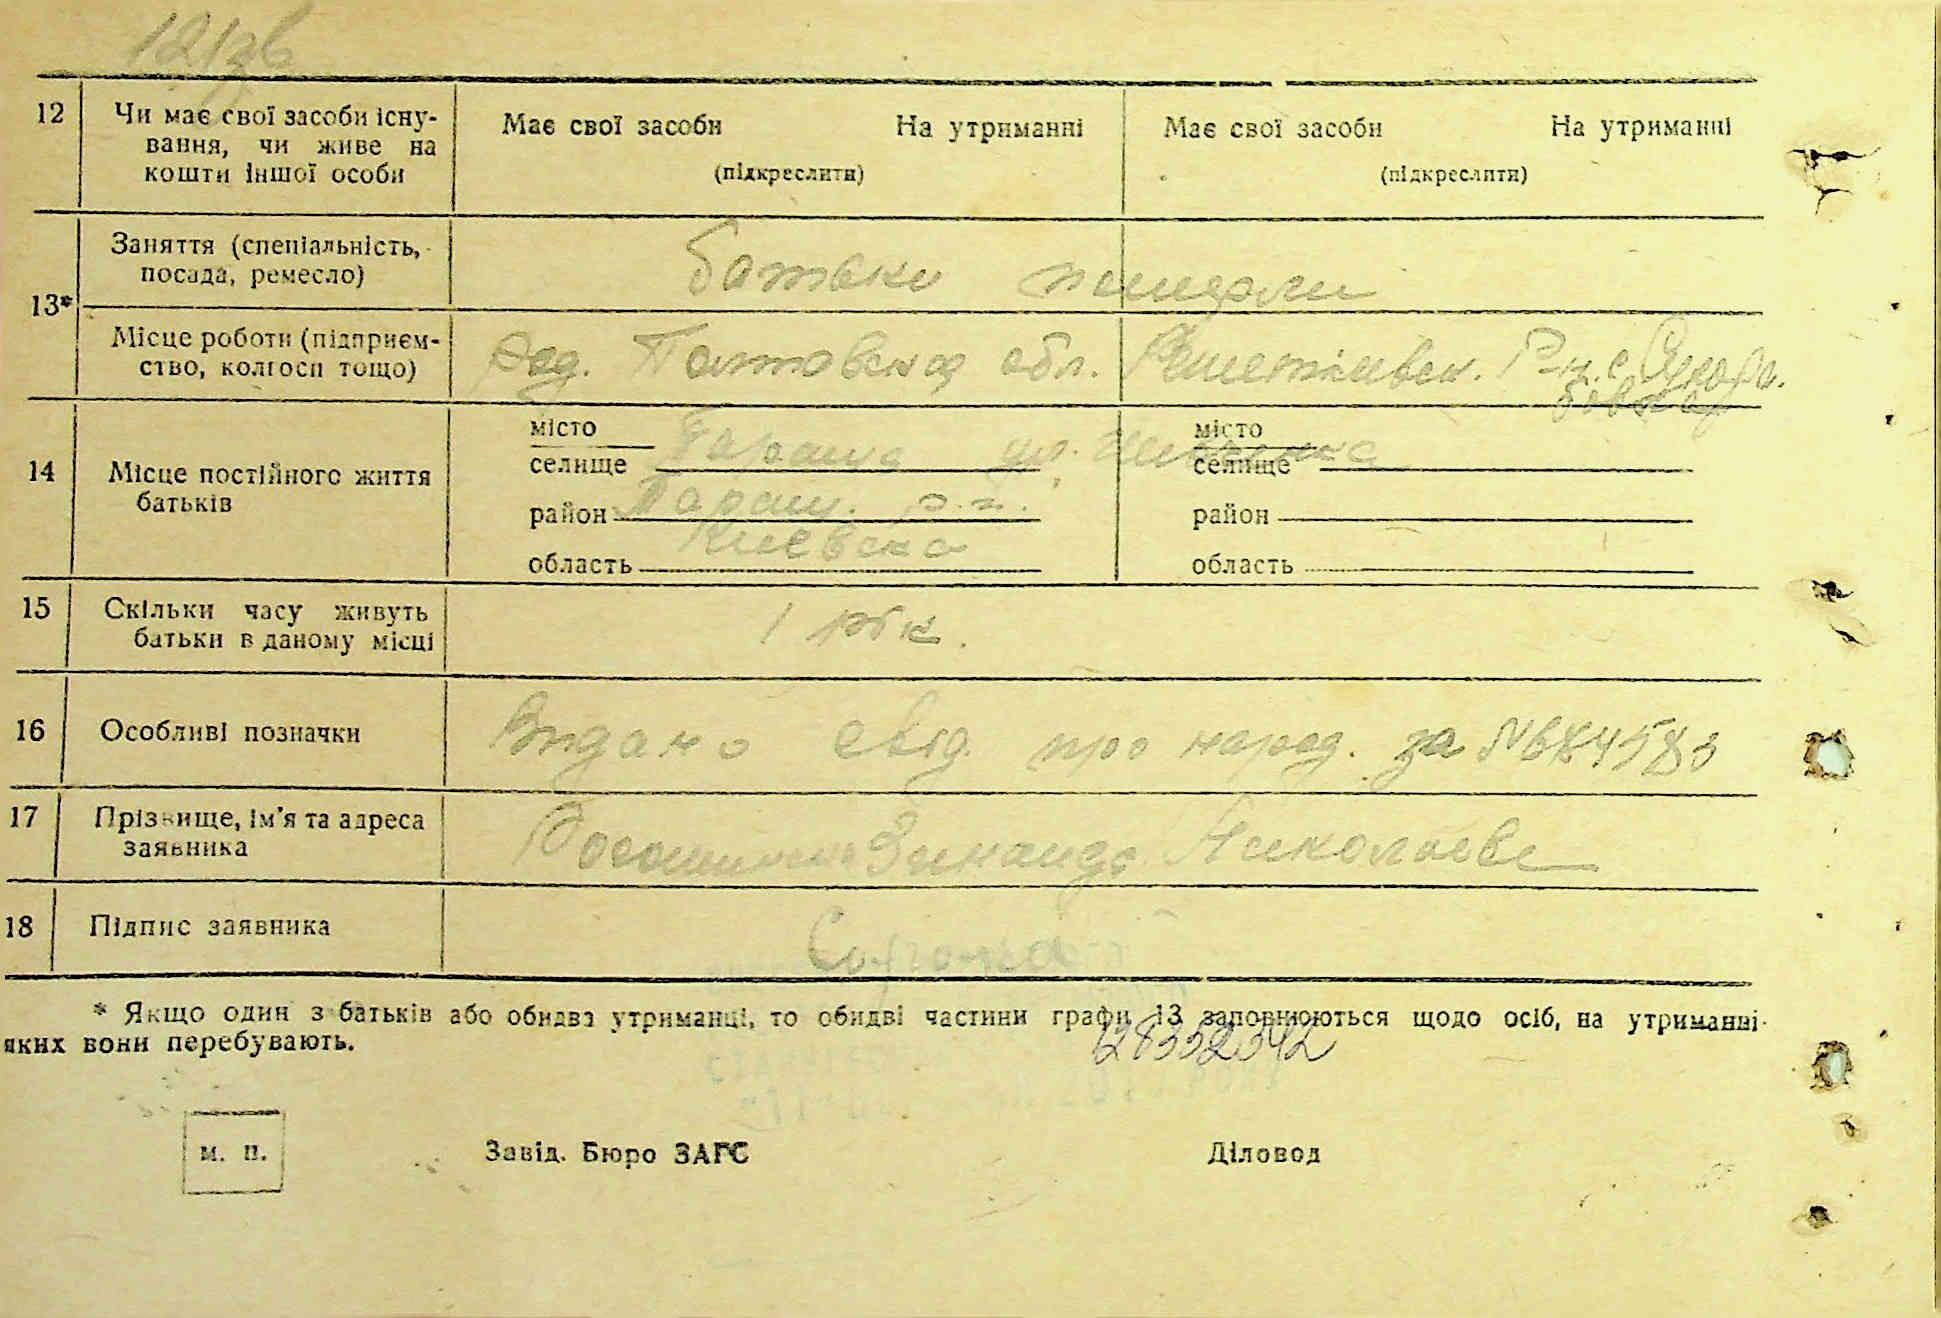 12
Чи має свої засоби існу-
вання, чи живе на
кошти іншої особи
Має свої засоби На утриманні
(підкреслити)
Має свої засоби На утриманні
(підкреслити)
13*
Заняття (спеціальність,
посада, ремесло)
батьки померли
Місце роботи (підприєм-
ство, колгосп тощо)
Полтавська обл. Решетилівськ. р-н. с.
14
Місце постійного життя
батьків
місто
селище Тараща ул. Шевченка
район Таращ. р-н.
область Киевска
місто
селище
район
область
15
Скільки часу живуть
батьки в даному місці
1 рік.
16
Особливі позначки
Видано свід. про народ. за № 684583
17
Прізвище, ім'я та адреса
заявника
Зинаида Николаевн
18
Підпис заявника
* Якщо один з батьків або обидва утриманці, то обидві частини графи 13 заповнюються щодо осіб, на утриманні
яких вони перебувають.
128352342
м. п.
Завід. Бюро ЗАГС
Діловод